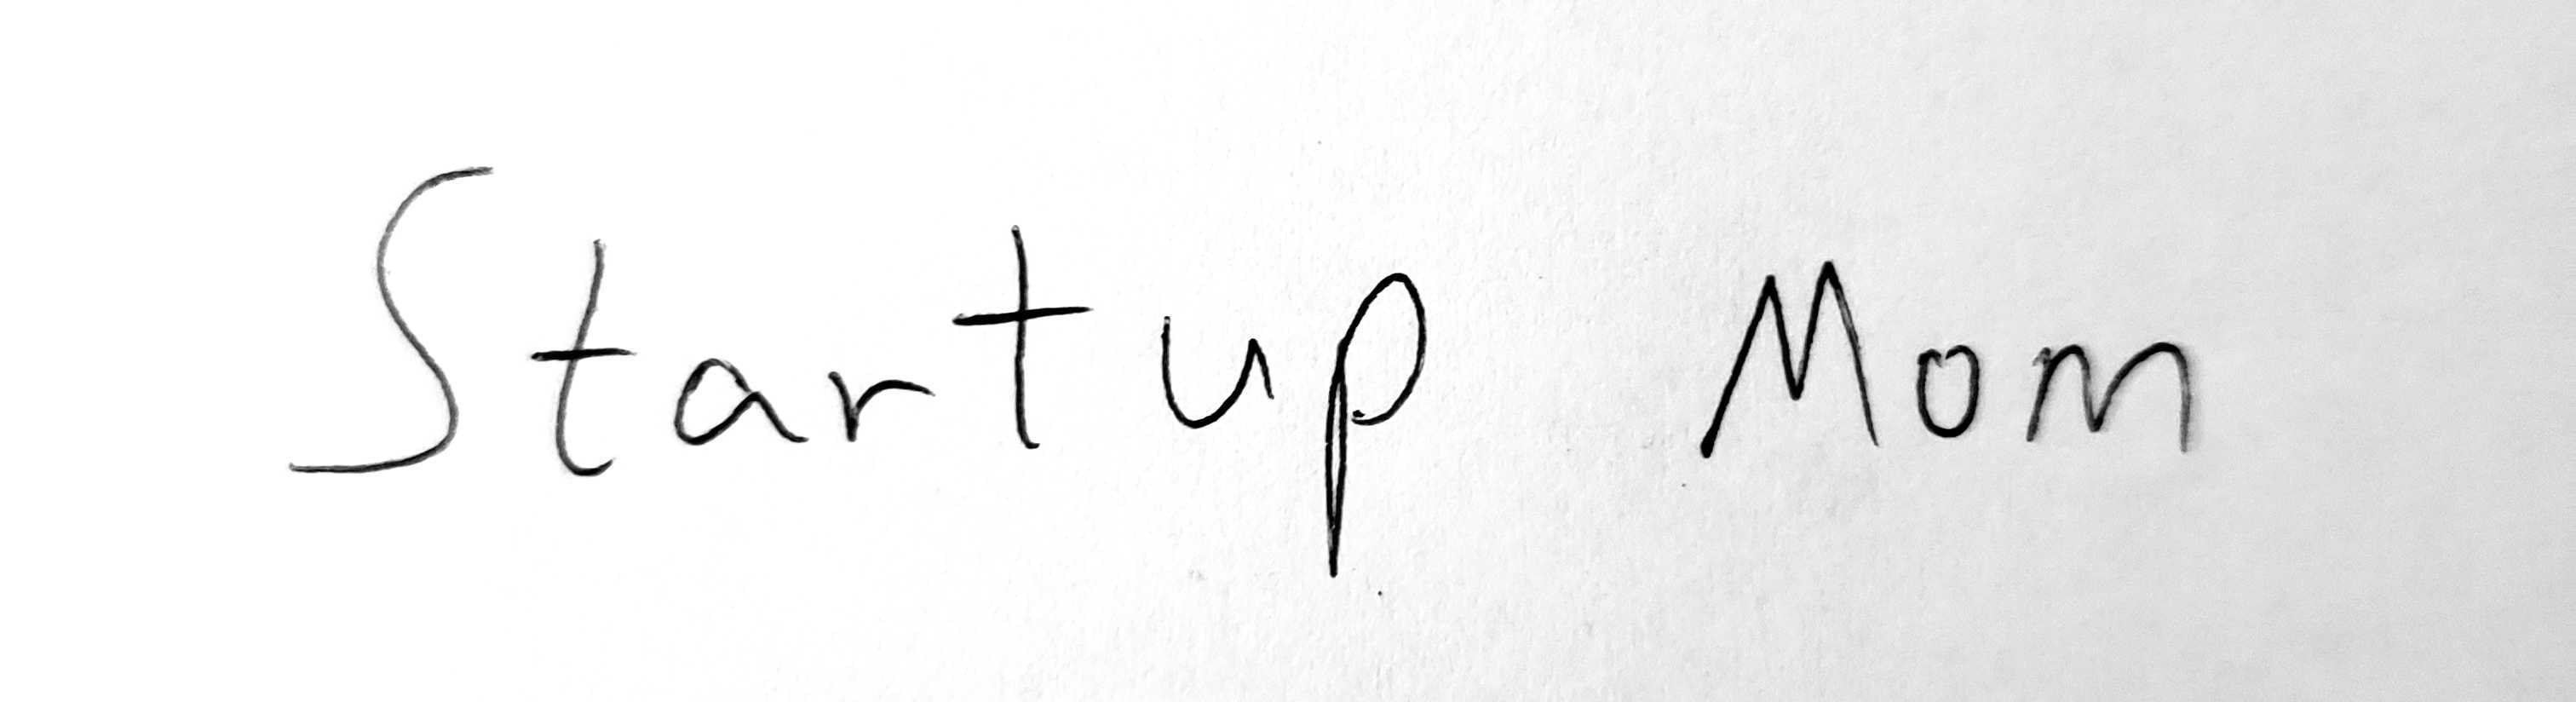 Startup Mom